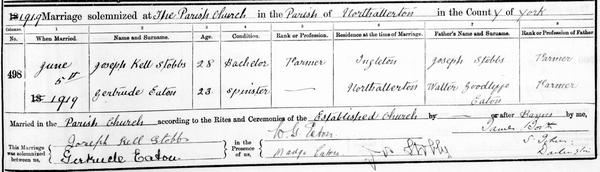 1919 Marriage solemnized at The Parish Church in the Parish of Northallerton in the County of York
Columns. 1 2 3 4 5 6 7 8
No. When Married. Name and Surname. Age. Condition. Rank or Profession. Residence at the time of Marriage. Father's Name and Surname. Rank or Profession of Father
498 June 5th 1919
Joseph Kell Stobbs 28 Bachelor Farmer Ingleton Joseph Stobbs Farmer
Gertrude Eaton 23 Spinster Northallerton Walter Goodlyffe Eaton Farmer
Married in the Parish Church according to the Rites and Ceremonies of the Established Church by — or after Banns by me,
This Marriage was solemnized between us, Joseph Kell Stobbs Gertrude Eaton in the Presence of us, W G Eaton Madge Eaton Jos Stobbs James Booth
Darlington